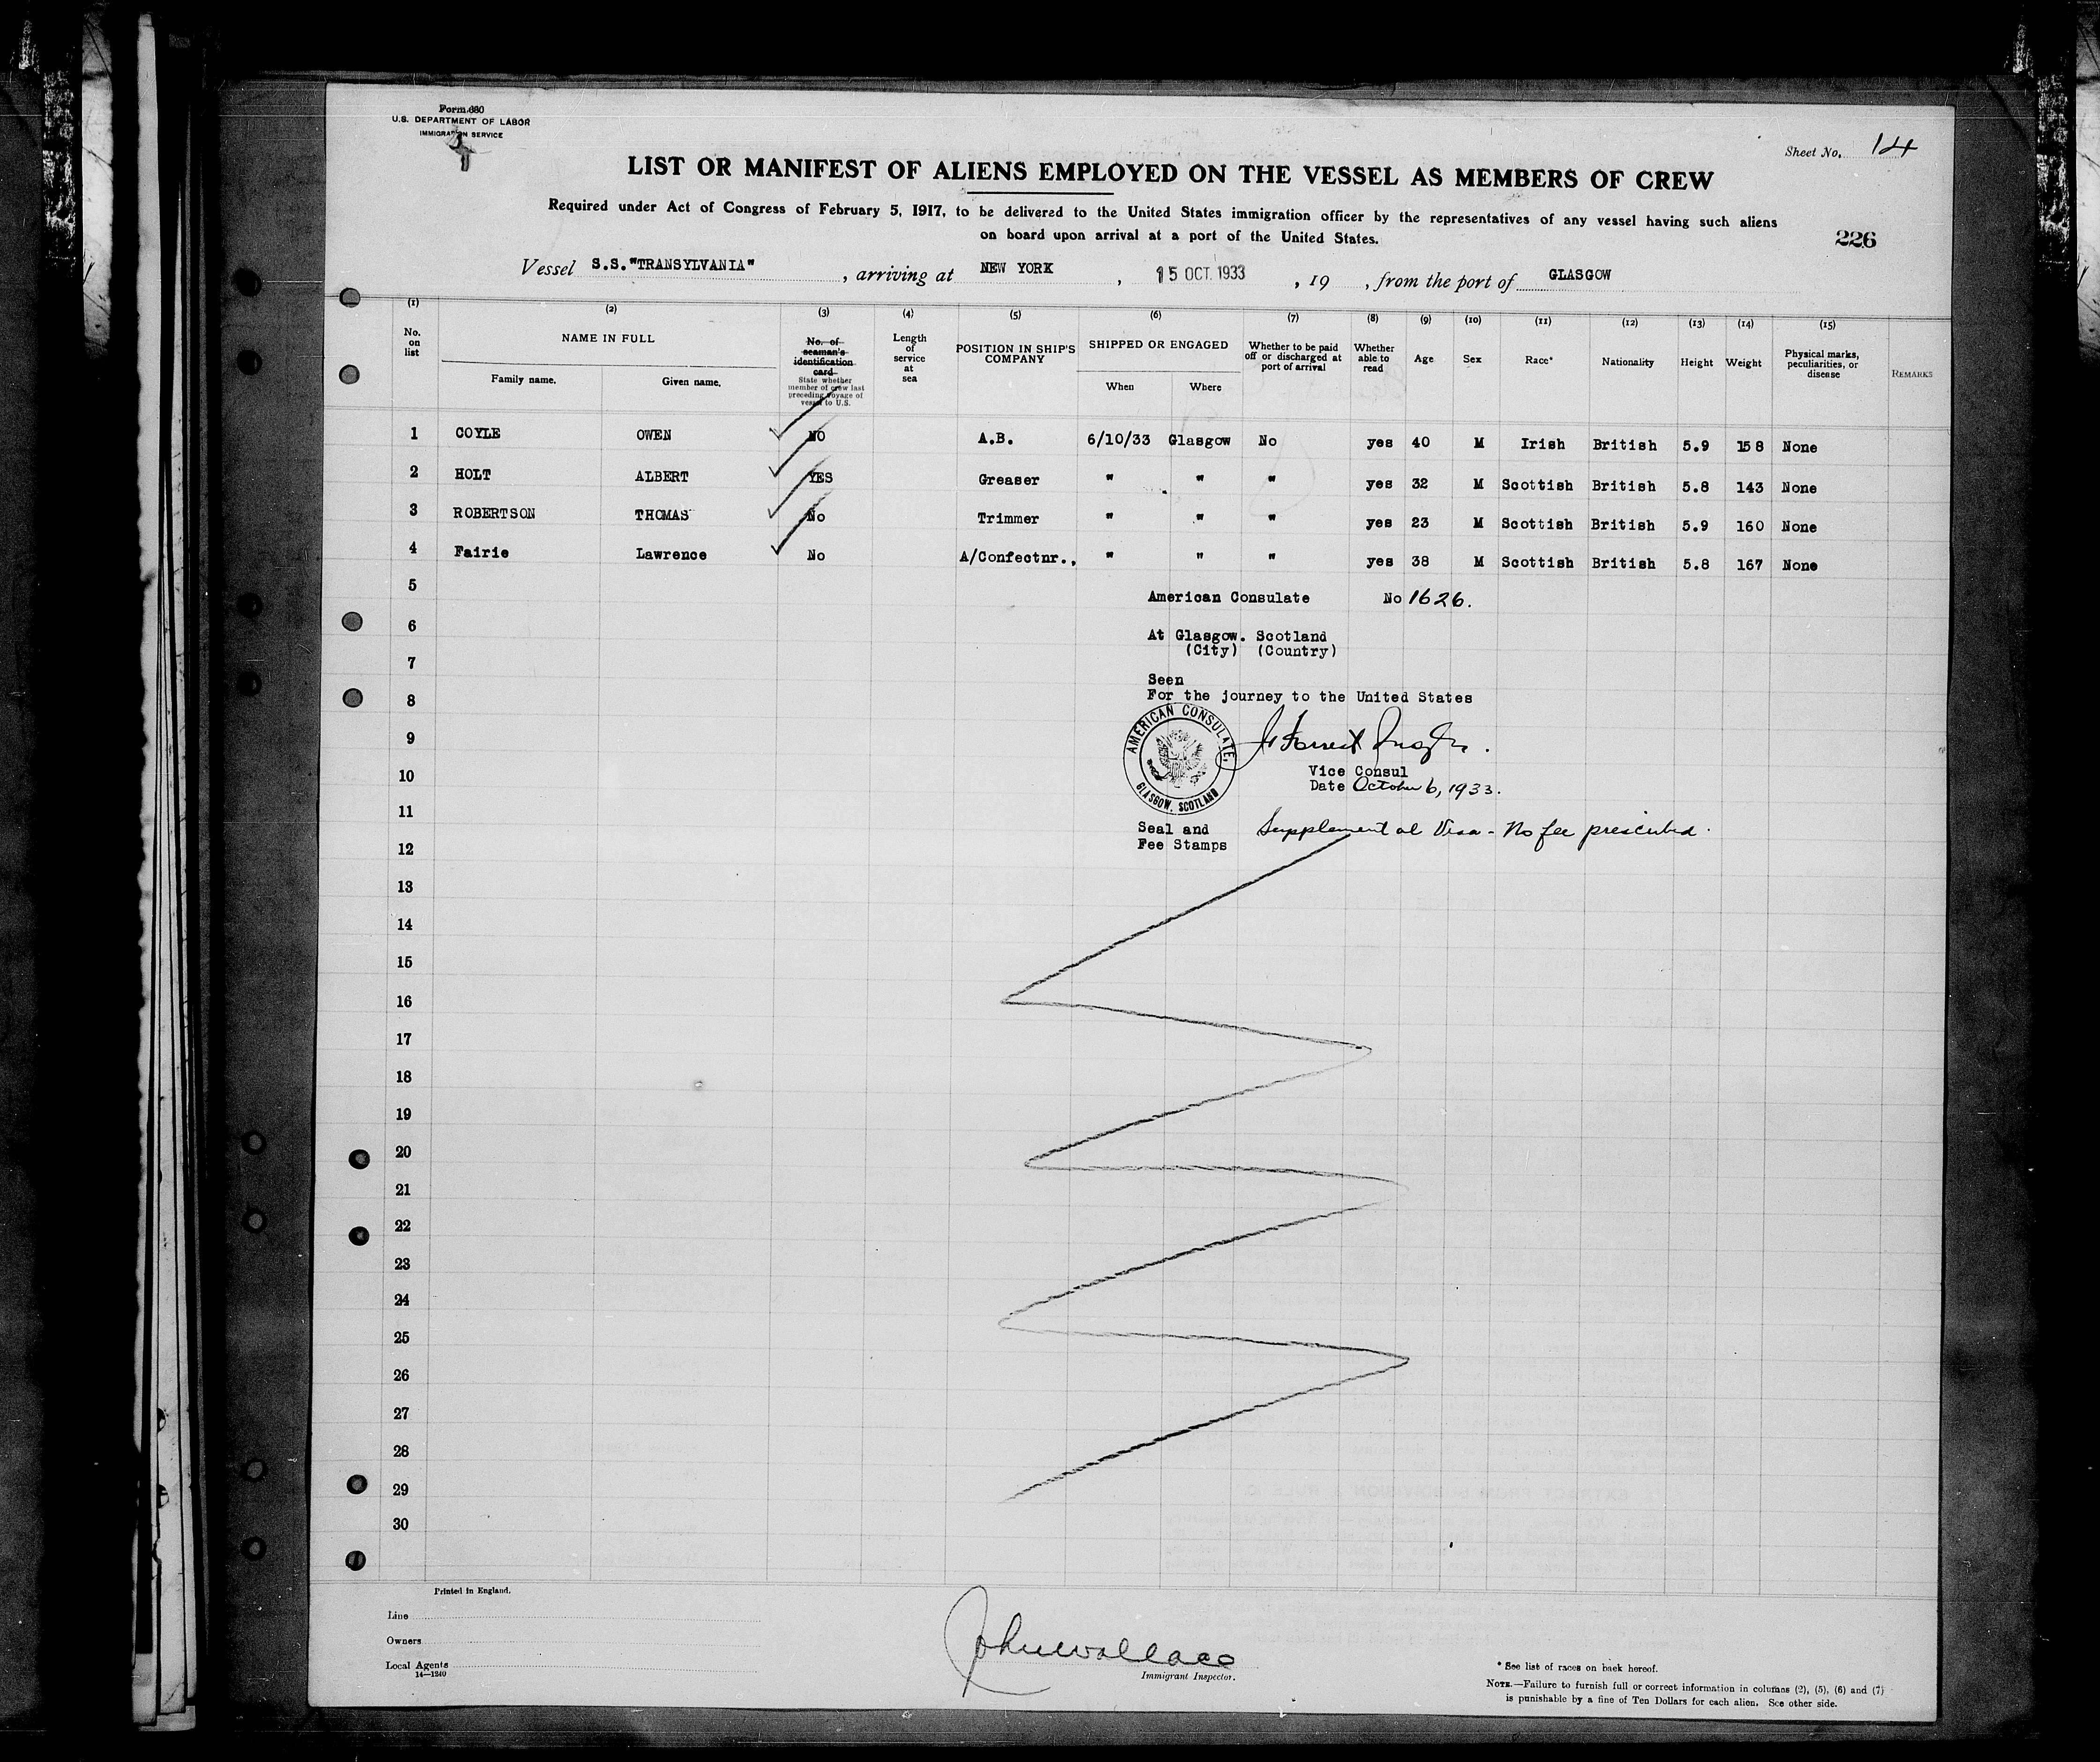 Form 680
U.S. DEPARTMENT OF LABOR
IMMIGRATION SERVICE
Sheet No. 14
LIST OR MANIFEST OF ALIENS EMPLOYED ON THE VESSEL AS MEMBERS OF CREW
Required under Act of Congress of February 5, 1917, to be delivered to the United States immigration officer by the representatives of any vessel having such aliens
on board upon arrival at a port of the United States.
226
Vessel S.S."TRANSYLVANIA", arriving at NEW YORK, 15 OCT. 1933, 19 , from the port of GLASGOW
(1) (2) (3) (4) (5) (6) (7) (8) (9) (10) (11) (12) (13) (14) (15)
No. on list
NAME IN FULL
Family name. Given name.
No. of seaman's identification card
State whether member of crew last preceding voyage of vessel to U.S.
Length of service at sea
POSITION IN SHIP'S COMPANY
SHIPPED OR ENGAGED
When Where
Whether to be paid off or discharged at port of arrival
Whether able to read
Age
Sex
Race*
Nationality
Height
Weight
Physical marks, peculiarities, or disease
REMARKS
1 COYLE OWEN NO A.B. 6/10/33 Glasgow No yes 40 M Irish British 5.9 158 None
2 HOLT ALBERT YES Greaser " " " yes 32 M Scottish British 5.8 143 None
3 ROBERTSON THOMAS No Trimmer " " " yes 23 M Scottish British 5.9 160 None
4 Fairie Lawrence No A/Confectnr., " " " yes 38 M Scottish British 5.8 167 None
5
American Consulate No 1626.
6
At Glasgow. Scotland
(City) (Country)
7
Seen
8
For the journey to the United States
AMERICAN CONSULATE,
GLASGOW, SCOTLAND
9
10
Vice Consul
Date October 6, 1933.
11
Seal and
Fee Stamps
Supplemental Visa - No fee prescribed.
12
13
14
15
16
17
18
19
20
21
22
23
24
25
26
27
28
29
30
Printed in England.
Line
Owners
Local Agents
14—1240
John Wallace
Immigrant Inspector.
* See list of races on back hereof.
NOTE.—Failure to furnish full or correct information in columns (2), (5), (6) and (7)
is punishable by a fine of Ten Dollars for each alien. See other side.